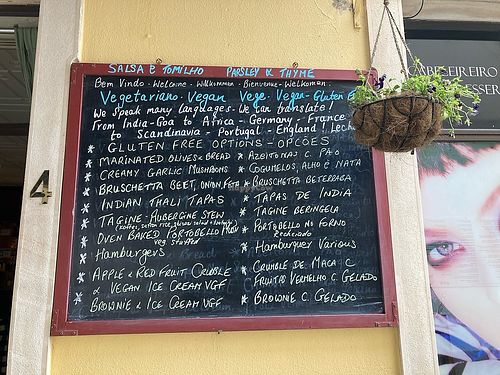 SALSA E TOMILHO PARSLEY & THYME
Bem Vindo - Welcome - Willkommen - Bienvenue - Welkomen
Vegetariano - Vegan Vege - Vegan - Gluten F
We speak many languages - We can translate!
From India - Goa to Africa - Germany - France
to Scandinavia - Portugal - England!
* GLUTEN FREE OPTIONS - OPÇÕES
* MARINATED OLIVES & BREAD * AZEITONAS C PÃO
* CREAMY GARLIC MUSHROOMS * COGUMELOS, ALHO & NATA
* BRUSCHETTA BEET, ONION, FETA * BRUSCHETTA BETERRABA
* INDIAN THALI TAPAS * TAPAS DE INDIA
* TAGINE AUBERGINE STEW * TAGINE BERINGELA
* OVEN BAKED PORTOBELLO * PORTOBELLO NO FORNO
veg stuffed Recheado
* Hamburgers * Hamburguer Various
* APPLE & RED FRUIT CRUMBLE * CRUMBLE DE MAÇA C
& VEGAN ICE CREAM VGF FRUITAS VERMELHO C GELADO
* BROWNIE & ICE CREAM VGF * BROWNIE C. GELADO
4
CABELEIREIRO